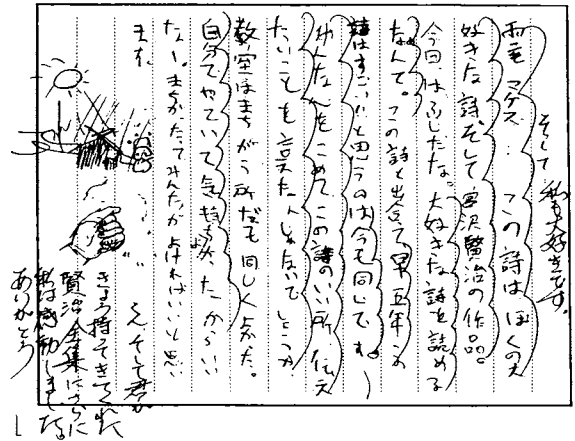 そして 私も大好きです。
雨ニモマケズ… この詩はぼくの大
好きな詩、そして宮沢賢治の作品。
今回はふしだな。大好きな詩を読める
なんて。この詩と出会って早五年、この
詩はすごいと思うのは今も同じです。
みんなをこめてこの詩のいい所、伝え
たいことを言えたんじゃないで
教室はまちがう所だも同じくよかった。
自分でやっていて気持ちよかったからいい
なー。まちがったってみんながよければいいと思い
ます。
え, そして君が
きょう持ってきてくれた
賢治全集にさらに
私は感動しました。
ありがとう